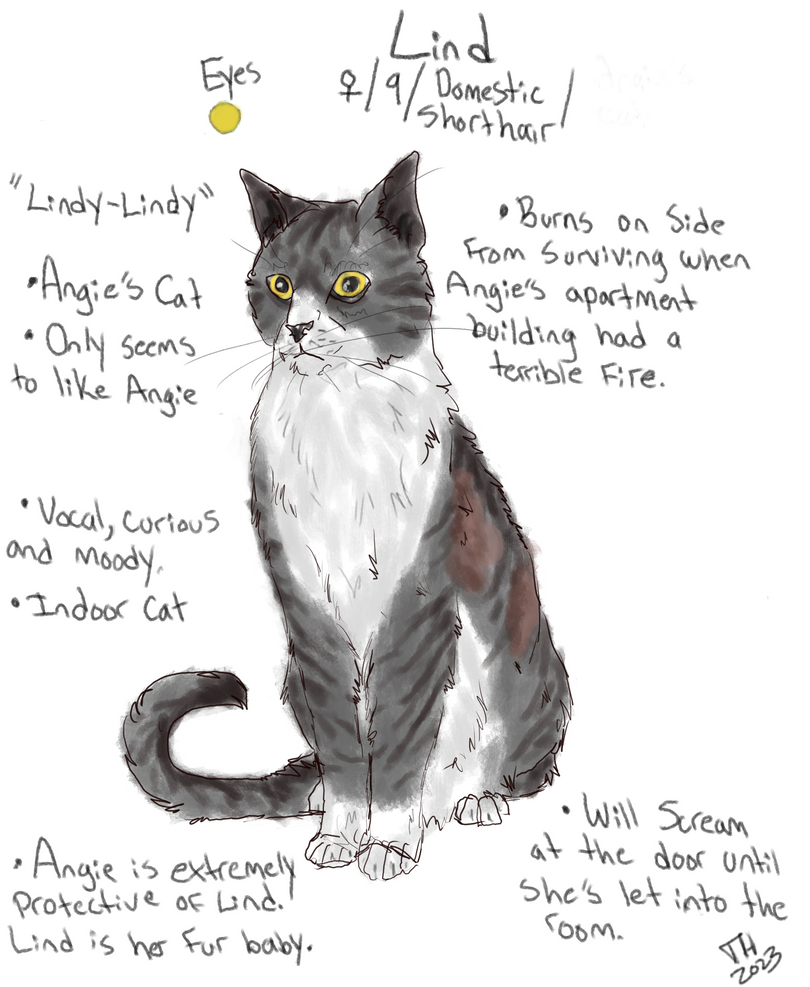 Lind
♀/9/Domestic
Shorthair/
Eyes
"Lindy-Lindy"
•Angie's Cat
•Only seems
to like Angie
•Burns on Side
From Surviving when
Angie's apartment
building had a
terrible Fire.
•Vocal, curious
and moody.
•Indoor Cat
•Angie is extremely
Protective of Lind.
Lind is her Fur baby.
•Will Scream
at the door until
She's let into the
room.
TH
2023